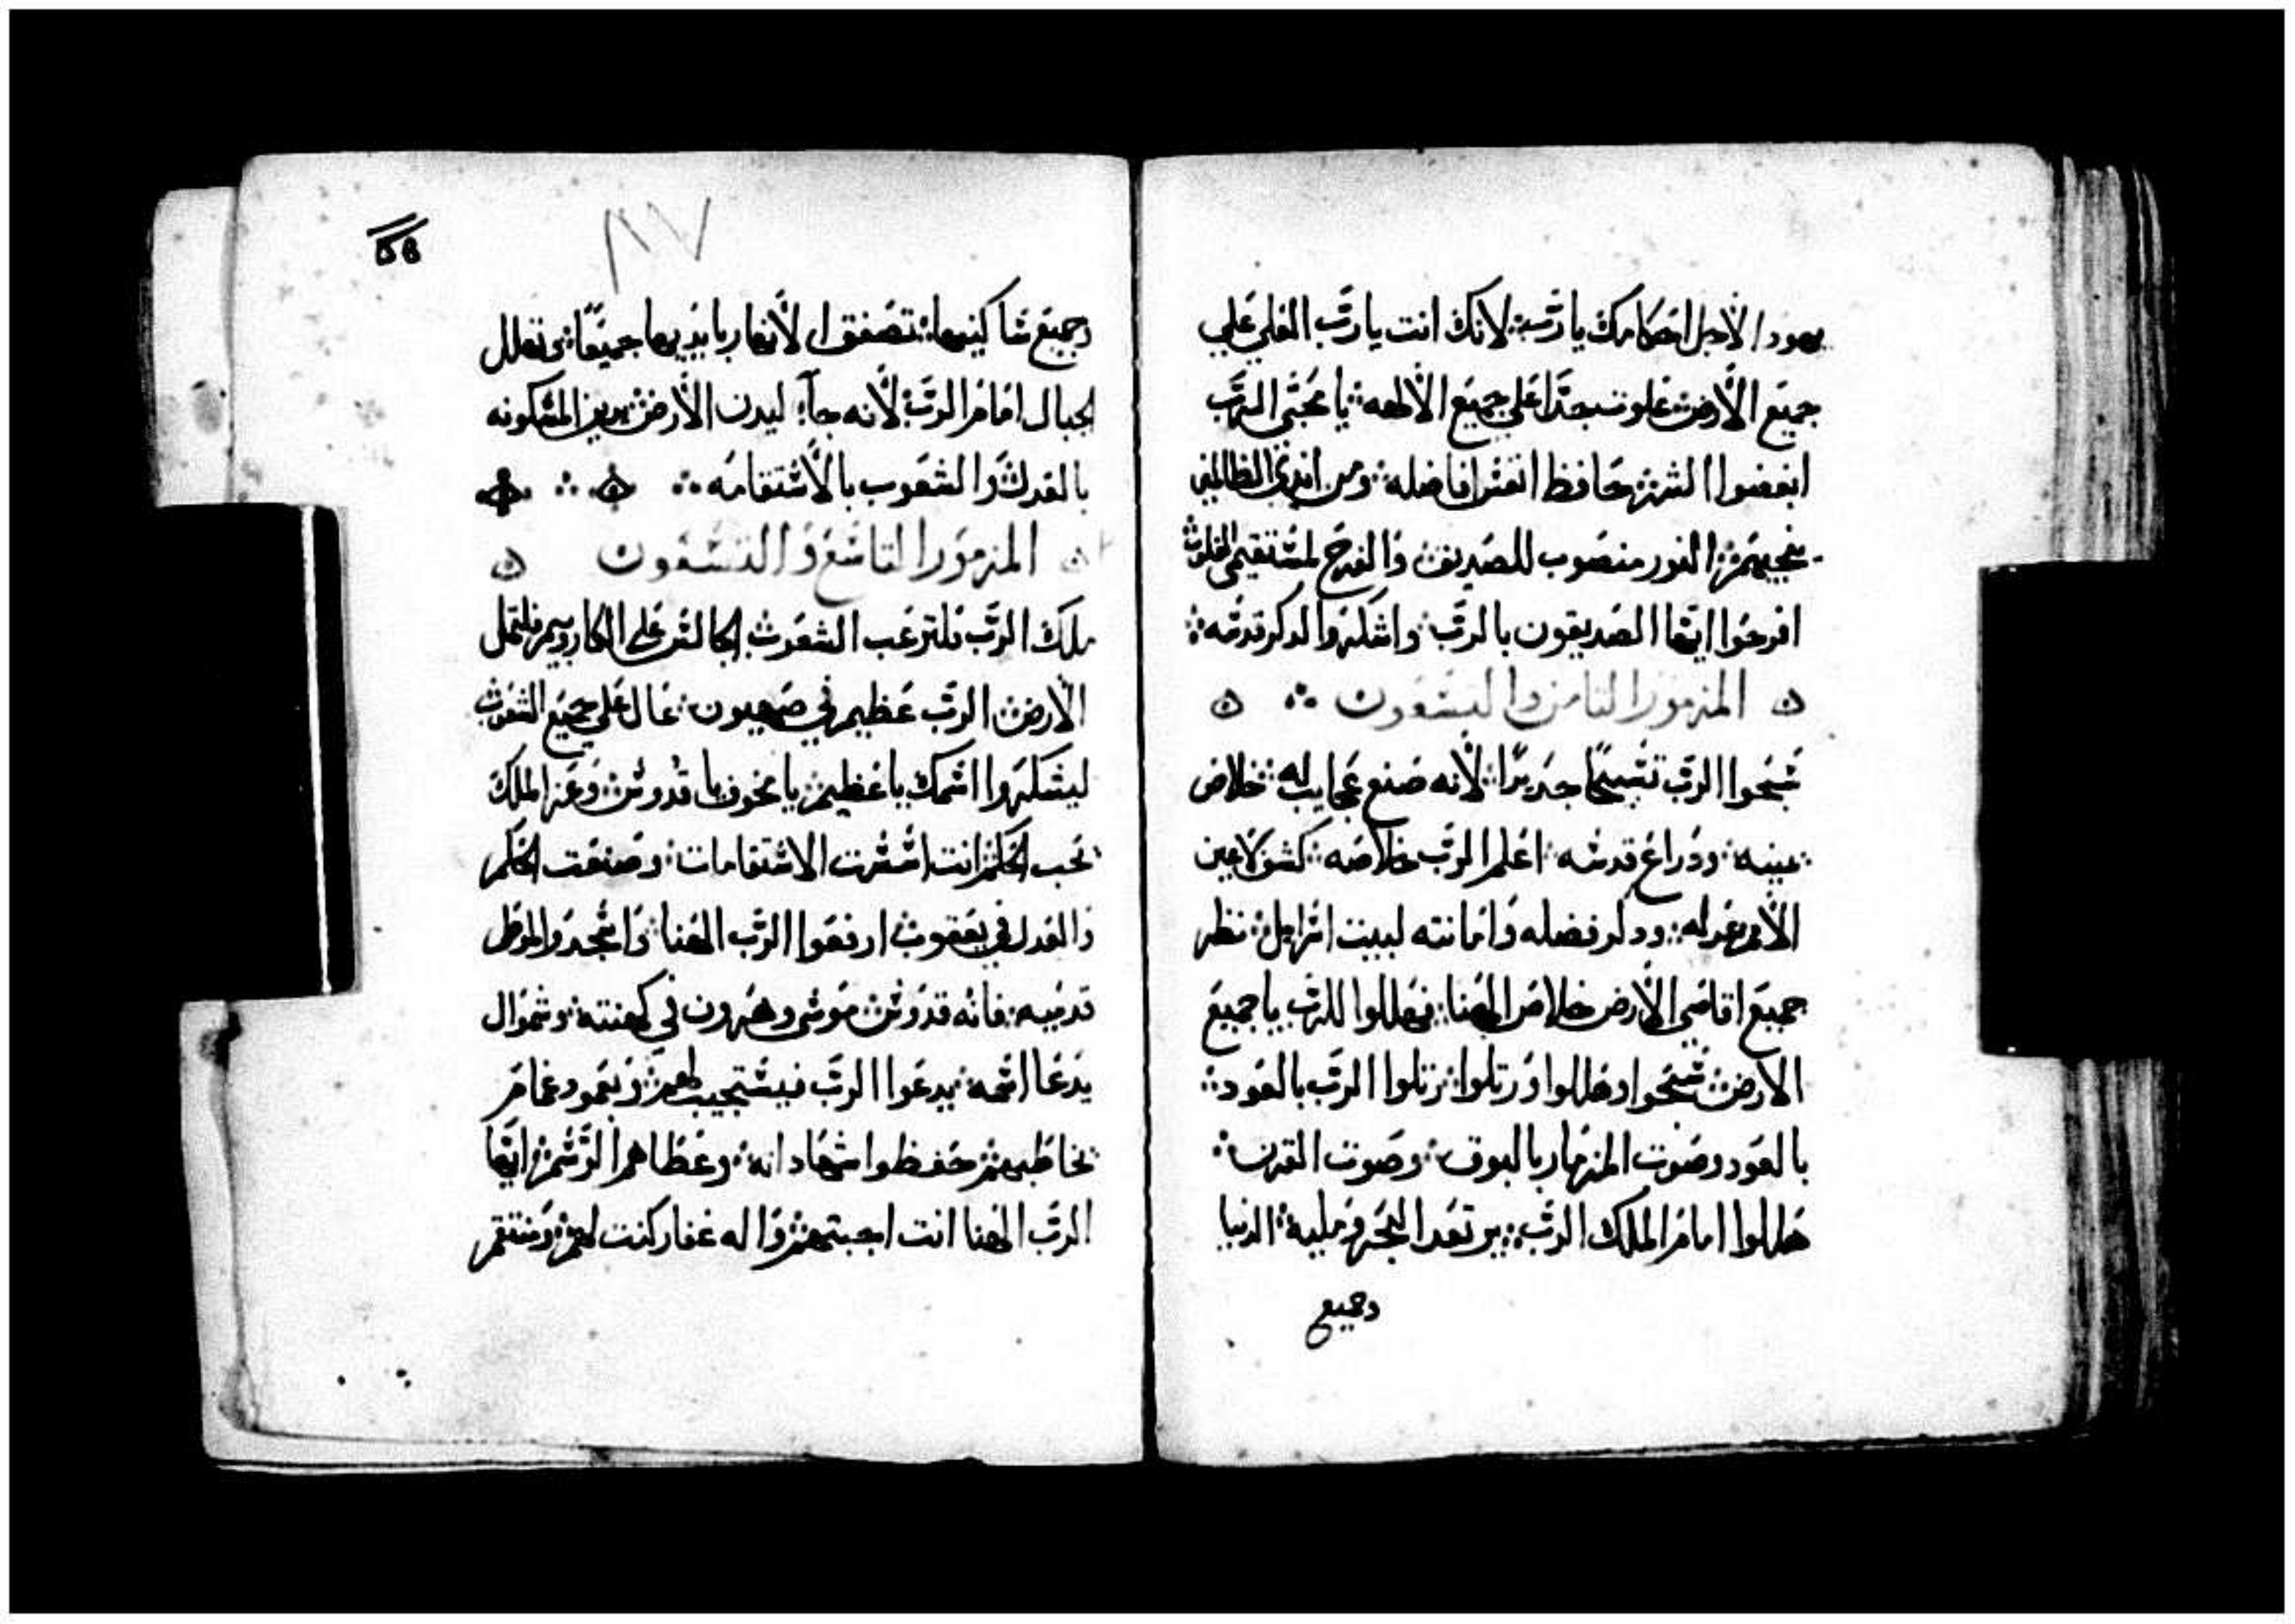 يهودا لاجل احكامك يا رب لانك انت يا رب العلي علي
جميع الارض علوت جدا علي جميع الالهه يا محبي الرب
ابغضوا الشر حافظ انفس افاضله ومن ايدي الظالمين
ينجيهم النور منصوب للصديق والفرح لمستقيمي القلوب
افرحوا ايها الصديقون بالرب واشكروا لدكر قدسه
ه المزمور الثامن والتسعون ه
سبحوا الرب تسبيحا جديدا لانه صنع عجايب له خلاص
يمينه ودراع قدسه اعلم الرب خلاصه كشف لاعين
الامم عدله ودكر فضله وامانته لبيت اسرايل نظر
جميع اقاصي الارض خلاص الهنا فهللوا للرب يا جميع
الارض سبحوا وهللوا ورتلوا رتلوا الرب بالعود
بالعود وصوت المزمار بالبوق وصوت القرن
هللوا امام الملك الرب يرتعد البحر ومليه الدنيا
وجميع
٨٧
وجميع ساكنيها تصفق الانهار بايديها جميعا وتهلل
الجبال امام الرب لانه جآ ليدن الارض يدين المسكونه
بالعدل والشعوب بالاستقامه
ه المزمور التاسع والتسعون ه
ملك الرب فلترعب الشعوب الجالس علي الكاروبيم فلتمل
الارض الرب عظيم في صهيون عال علي جميع الشعوب
ليشكروا اسمك يا عظيم يا مخوف يا قدوس وعز الملك
تحب الحكم انت اسست الاستقامات وصنعت الحكم
والعدل في يعقوب ارفعوا الرب الهنا واسجدوا لموطي
قدميه فانه قدوس موسي وهرون في كهنته وشموال
يدعا اسمه يدعوا الرب فيستجيب لهم وبعمود غمام
يخاطبهم حفظوا شهاداته وعطاهم الرسم ايها
الرب الهنا انت اجبتهم واله غفار كنت لهم ومنتقم